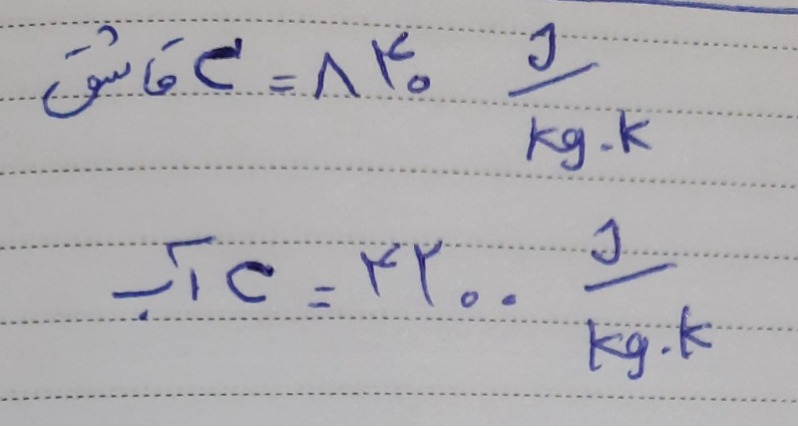 C قاشق = ۸۴۰ J/kg.k
C آب = ۴۲۰۰ J/kg.k